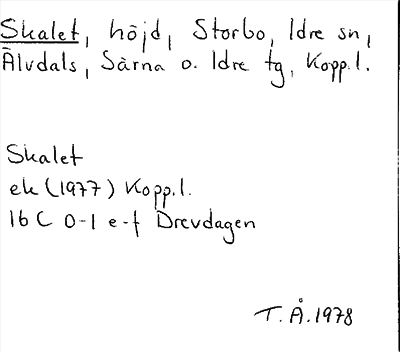 Skalet, höjd, Storbo, Idre sn,
Älvdals, Särna o. Idre tg, Kopp.l.
Skalet
ek (1977) Kopp.l.
16 C 0-1 e-f Drevdagen
T. Å. 1978